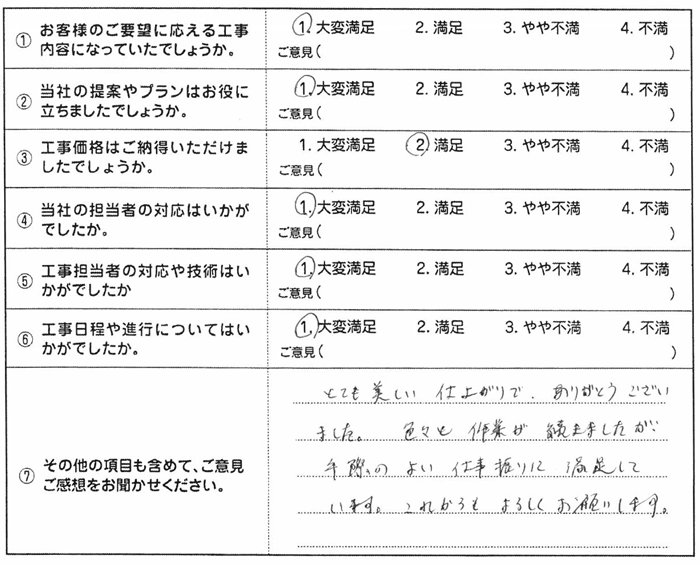 ① お客様のご要望に応える工事
内容になっていたでしょうか。
1. 大変満足 2. 満足 3. やや不満 4. 不満
ご意見( )
② 当社の提案やプランはお役に
立ちましたでしょうか。
1. 大変満足 2. 満足 3. やや不満 4. 不満
ご意見( )
③ 工事価格はご納得いただけま
したでしょうか。
1. 大変満足 2. 満足 3. やや不満 4. 不満
ご意見( )
④ 当社の担当者の対応はいかが
でしたか。
1. 大変満足 2. 満足 3. やや不満 4. 不満
ご意見( )
⑤ 工事担当者の対応や技術はい
かがでしたか
1. 大変満足 2. 満足 3. やや不満 4. 不満
ご意見( )
⑥ 工事日程や進行についてはい
かがでしたか。
1. 大変満足 2. 満足 3. やや不満 4. 不満
ご意見( )
⑦ その他の項目も含めて、ご意見
ご感想をお聞かせください。
とても美しい 仕上がりで、ありがとうござい
ました。 色々と 作業が 続きましたが
手際のよい 仕事振りに 満足して
います。これからも よろしくお願いします。